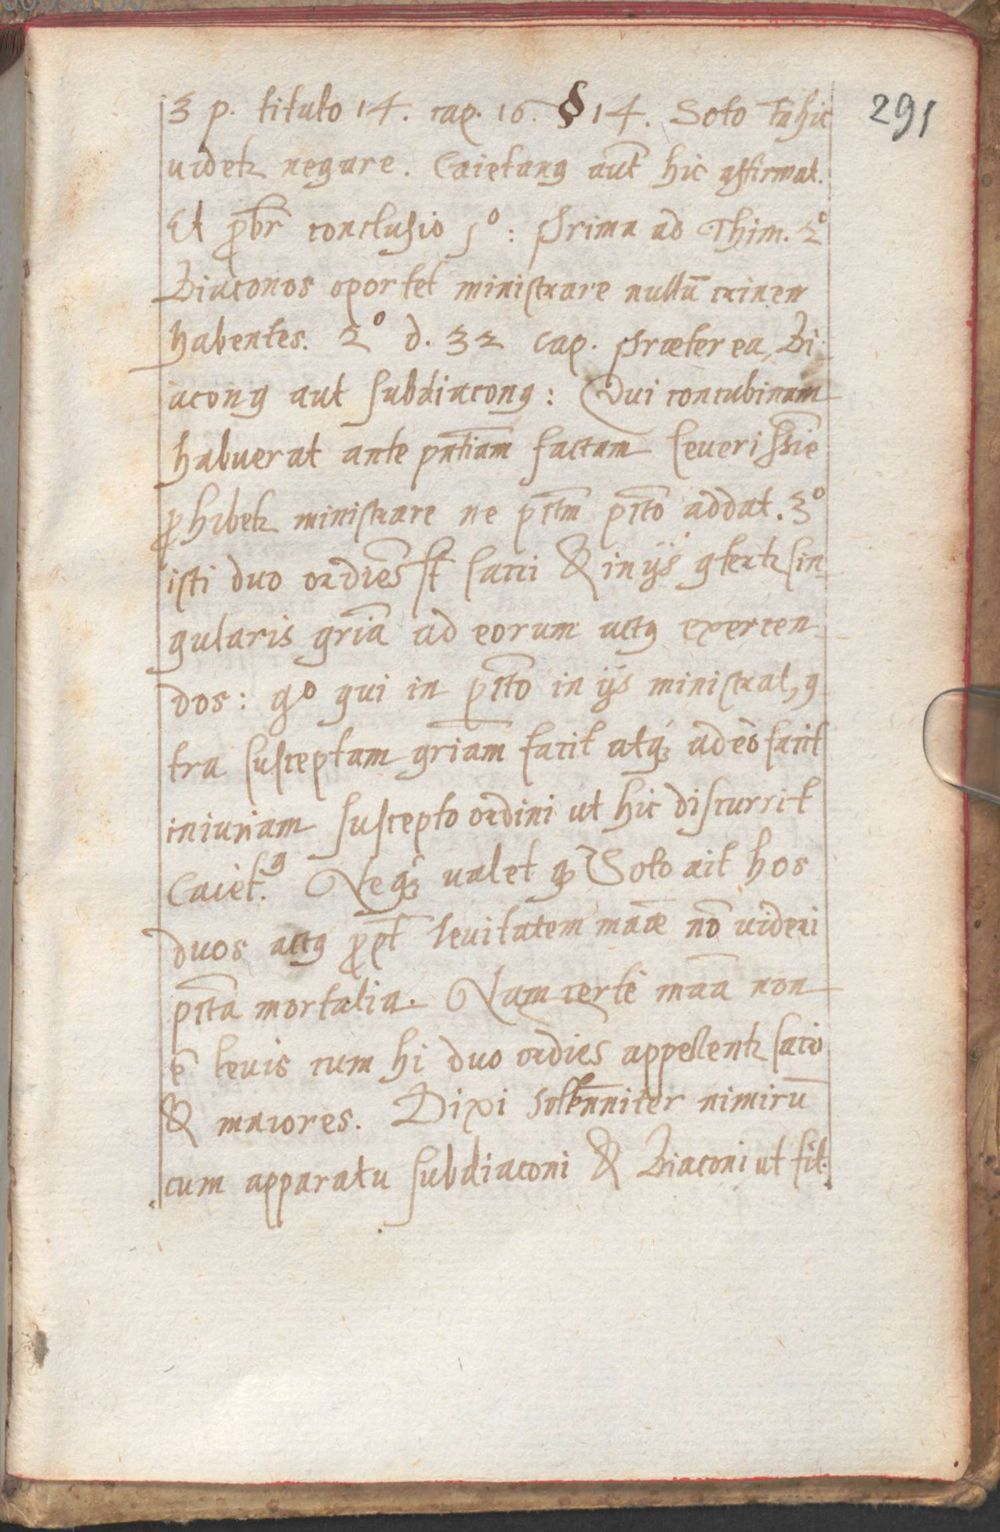 291
3 p. titulo 14. cap. 16. § 14. Soto tn̄ hic
uidetr negare. Caietanꝯ aut̄ hic affirmat.
Et ꝓbr̄ conclusio 1º: Prima ad Thim. 2º
Diaconos oportet ministrare nullū crimen
habentes. 2º d. 32 cap. præter ea, Di-
aconꝯ aut subdiaconꝯ: Qui concubinam
habuerat ante pn̄tiam factam seuerissīe
ꝓhibetr ministrare ne pc̄tm pc̄to addat. 3º
isti duo ordīes st̄ sacri & in ijs ꝯfertr sin-
gularis gr̄ia ad eorum actꝯ exercen-
dos: gº qui in pc̄to in ijs ministrat, ꝯ-
tra susceptam gr̄iam facit atq́ꝫ adeò facit
iniuriam suscepto ordini ut hic discurrit
Caiet.ꝯ Neq́ꝫ ualet qꝫ Soto ait hos
duos actꝯ ꝓpt̄ leuitatem māæ nō uideri
pc̄ta mortalia. Nam certè māa non
ē leuis cum hi duo ordīes appellentr sacri
& maiores. Dixi solēnniter nimirū
cum apparatu subdiaconi & Diaconi ut fit.